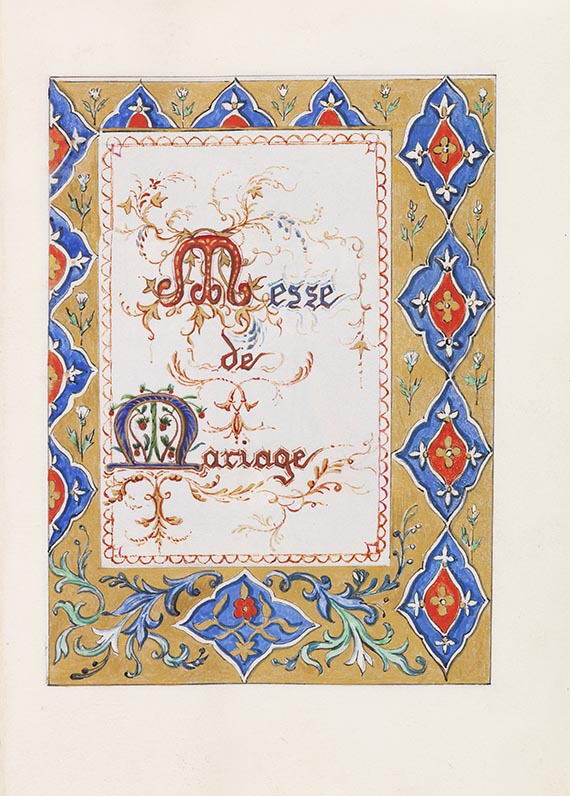 Messe
de
Mariage